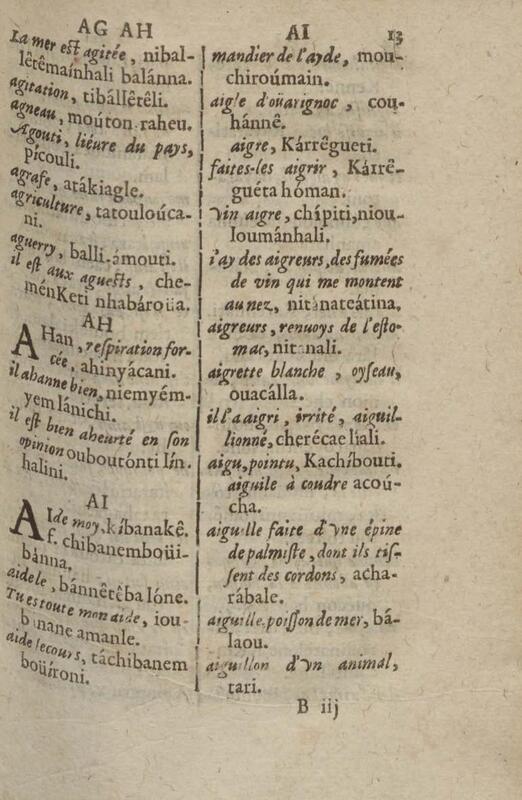 AG AH
La mer est agitée, nibal-
lêtêmaínhali balánna.
agitation, tibállêtêli.
agneau, moúton raheu.
Agouti, liéure du pays,
pícouli.
agrafe, atákiagle.
agriculture, tatouloúca-
ni.
aguerry, balli-ámouti.
il est aux aguests, che-
ménKeti nhabároüa.
AH
AHan, respiration for-
cée, ahinyácani.
il ahanne bien, niemyém-
yem lánichi.
il est bien aheurté en son
opinion ouboutónti lín-
halini.
AI
AIde moy, kíbanakê.
f. chibanemboüi-
bánna.
aidele, bánnêtêba lóne.
Tu es toute mon aide, iou-
banane amanle.
aide secours, táchibanem
boüíroni.
AI 13
mandier de l'ayde, mou-
chiroúmain.
aigle d'oüarignoc, cou-
hánnê.
aigre, Kárrêgueti.
faites-les aigrir, Kárrê-
guéta hóman.
Vin aigre, chípiti, niou-
loumánhali.
i'ay des aigreurs, des fumées
de vin qui me montent
au nez, nitanateátina.
aigreurs, renuoys de l'esto-
mac, nitanali.
aigrette blanche, oyseau,
ouacálla.
il l'a aigri, irrité, aiguil-
lionné, cherécae liali.
aigu, pointu, Kachíbouti.
aiguile à coudre acoú-
cha.
aiguille faite d'Vne épine
de palmiste, dont ils tis-
sent des cordons, acha-
rábale.
aiguille, poisson de mer, bá-
laou.
aiguillon d'Vn animal,
tari.
B iij